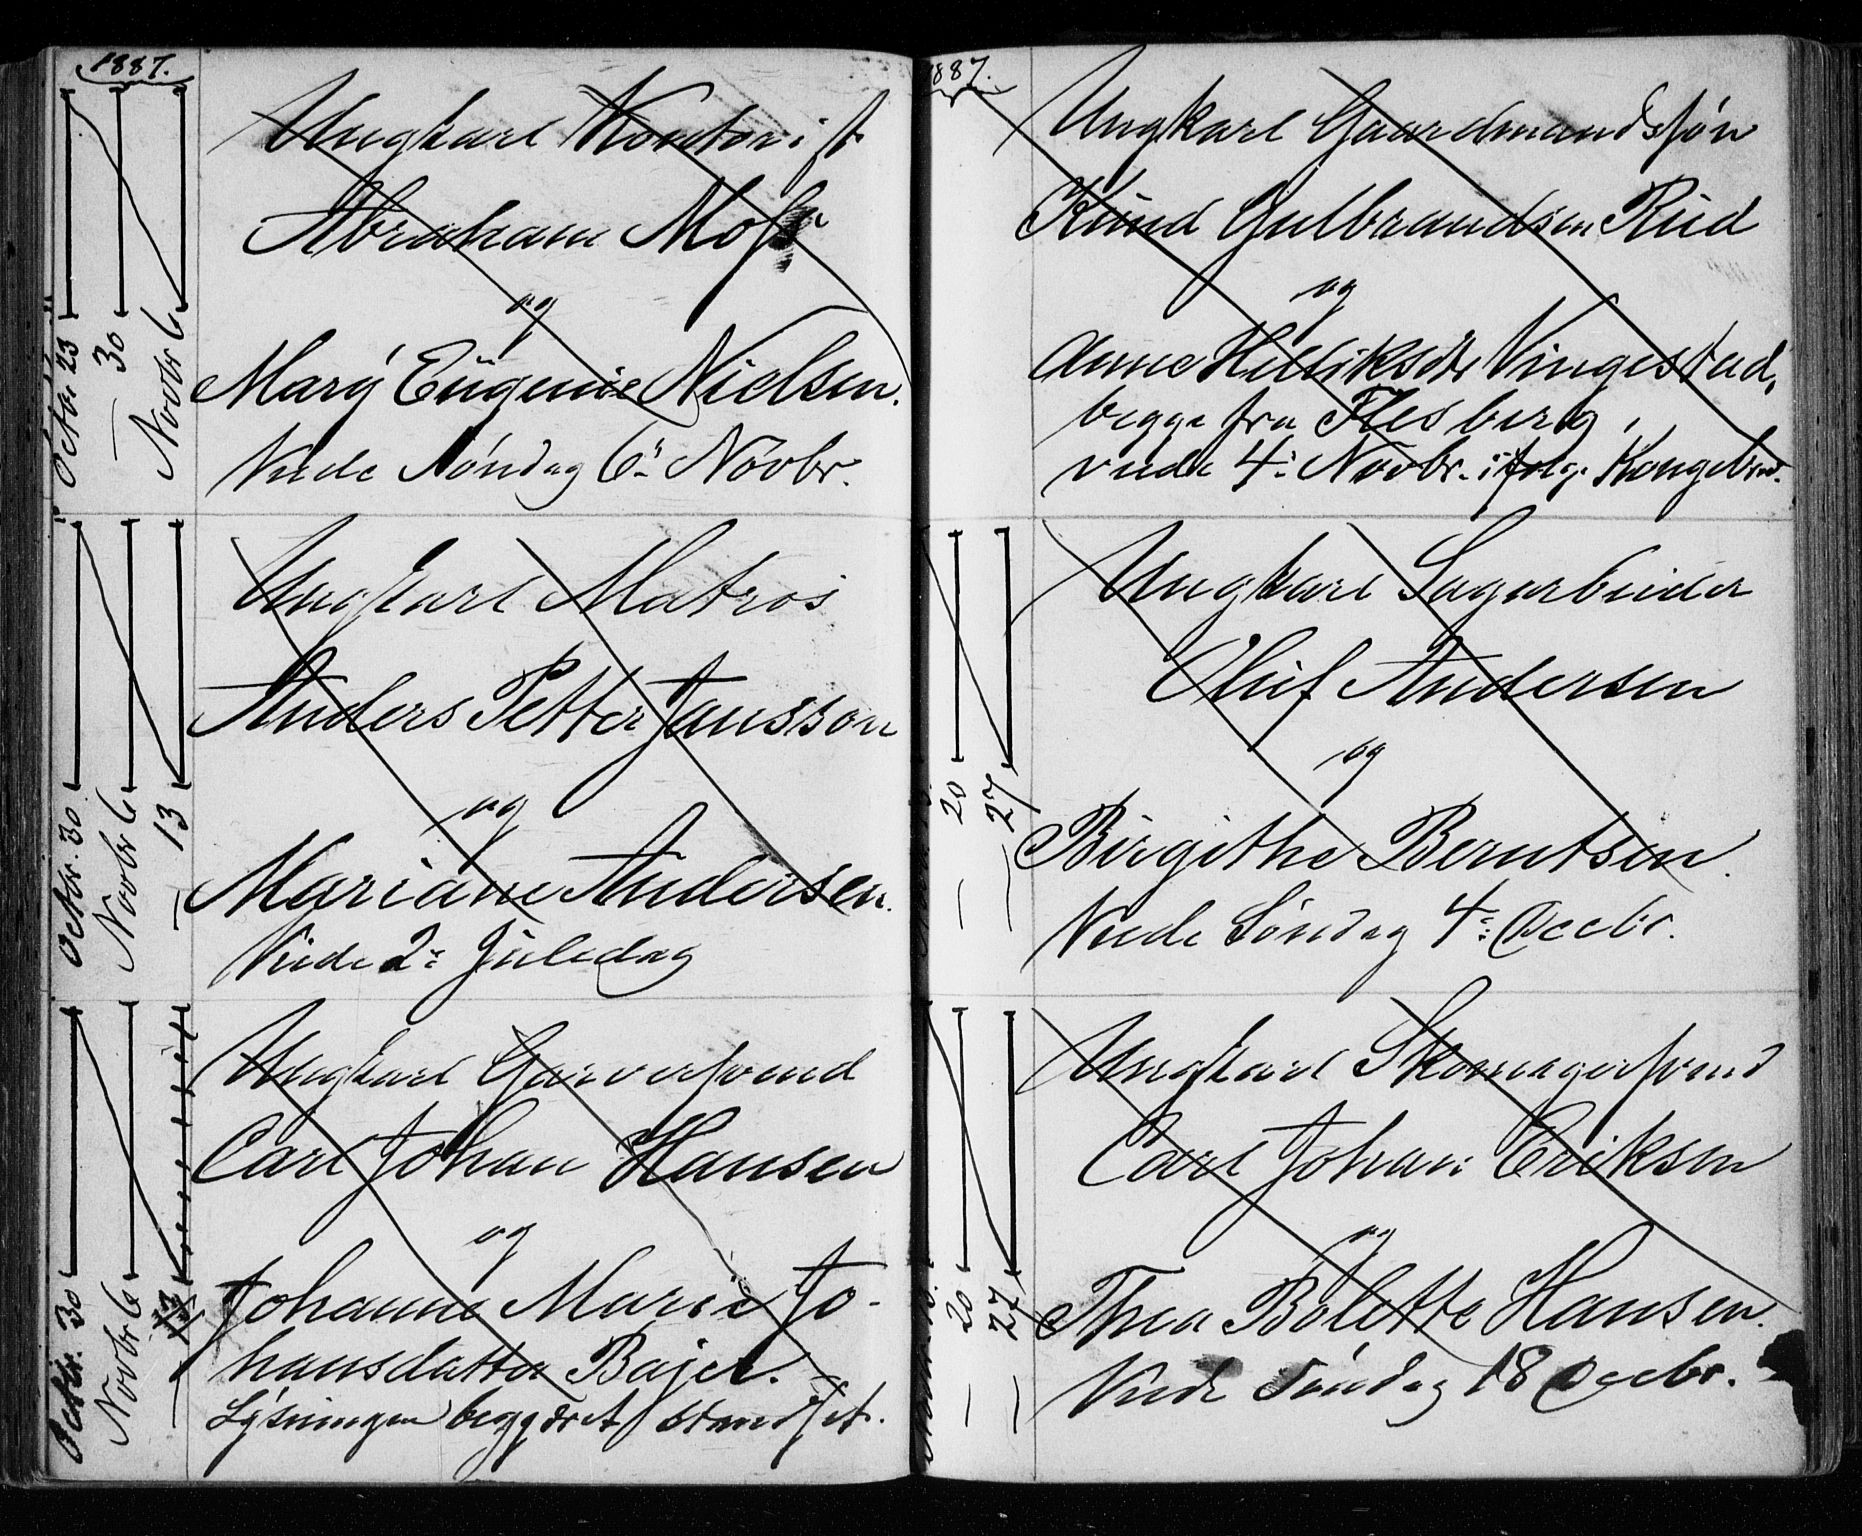 1887.
Octbr 23
— 30
Novbr 6
Ungkarl Kontorist
Abraham Moss
og
Mary Eugenie Nielsen.
Viede Søndag 6: Novbr.
Octbr. 30
Novbr 6
— 13
Ungkarl Matros
Anders Petter Jansson
og
Mariane Andersen.
Viede 2: Juledag
Octbr. 30
Novbr 6
— 13
Ungkarl Garversvend
Carl Johan Hansen
og
Johanne Marie Jo-
hansdatter Bajer.
Lysningen begjæret standset.
1887.
Ungkarl Gaardmandssøn
Knud Gulbrandsen Rud
og
Anne Helliksdtr Vingestad,
begge fra Flesberg,
viede 4: Novbr. ifølge Kongebrev.
— 20
— 27
Ungkarl Sagarbeider
Oluf Andersen
og
Birgithe Berntsen.
Viede Søndag 4: Decbr.
— 20
— 27
Ungkarl Skomagersvend
Carl Johan Eriksen
og
Thea Bolette Hansen.
Viede Søndag 18 Decbr.